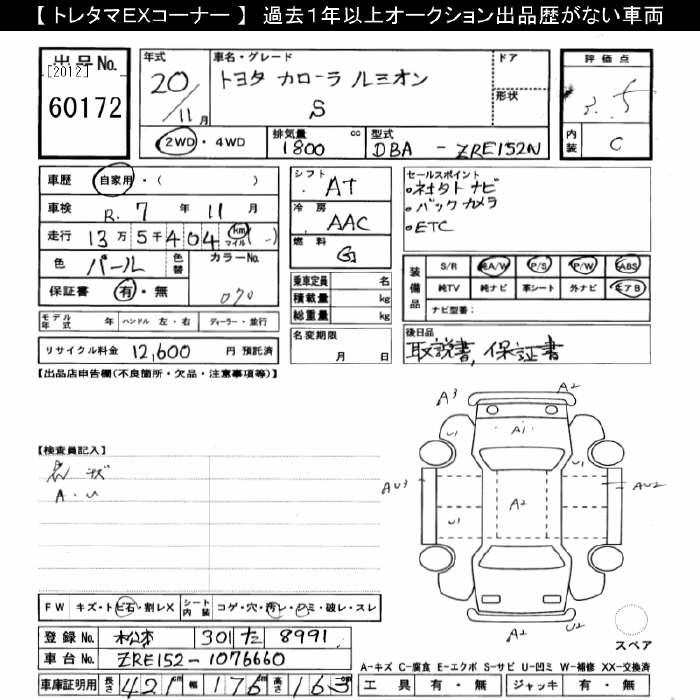 【 トレタマEXコーナー 】 過去1年以上オークション出品歴がない車両
出品No.
[2012]
60172
年式
20/11月
車名・グレード
トヨタ カローラ ルミオン
S
ドア
形状
評価点
3.5
内装 C
2WD・4WD
排気量 1800 cc
型式 DBA - ZRE152N
車歴 自家用・( )
車検 R. 7 年 11 月
走行 13万5千404 km マイル (-)
色 パール 色替 カラーNo.
保証書 有・無 070
シフト AT
冷房 AAC
燃料 G
乗車定員 名
積載量 kg
総重量 kg
セールスポイント
・社外ナビ
・バックカメラ
・ETC
装備品 S/R 純A/W P/S P/W ABS
純TV 純ナビ 革シート 外ナビ エアB
ナビ型番:
モデル年式 年 ハンドル 左・右 ディーラー・並行
名変期限 月 日
後日品
取説書, 保証書
リサイクル料金 12,600 円 預託済
【出品店申告欄(不良箇所・欠品・注意事項等)】
【検査員記入】
A.U
A3
A2
U1
A1
U1
AU3
A2
AU2
U1
A2
U2
スペア
FW キズ・トビ石・割レX シート内装 コゲ・穴・汚レ・シミ・破レ・スレ
登録No. 松本 301 た 8991
車台No. ZRE152-1076660
車庫証明用 長さ 421cm 幅 176cm 高さ 163
A-キズ C-腐食 E-エクボ S-サビ U-凹ミ W-補修 XX-交換済
工具 有・無 ジャッキ 有・無